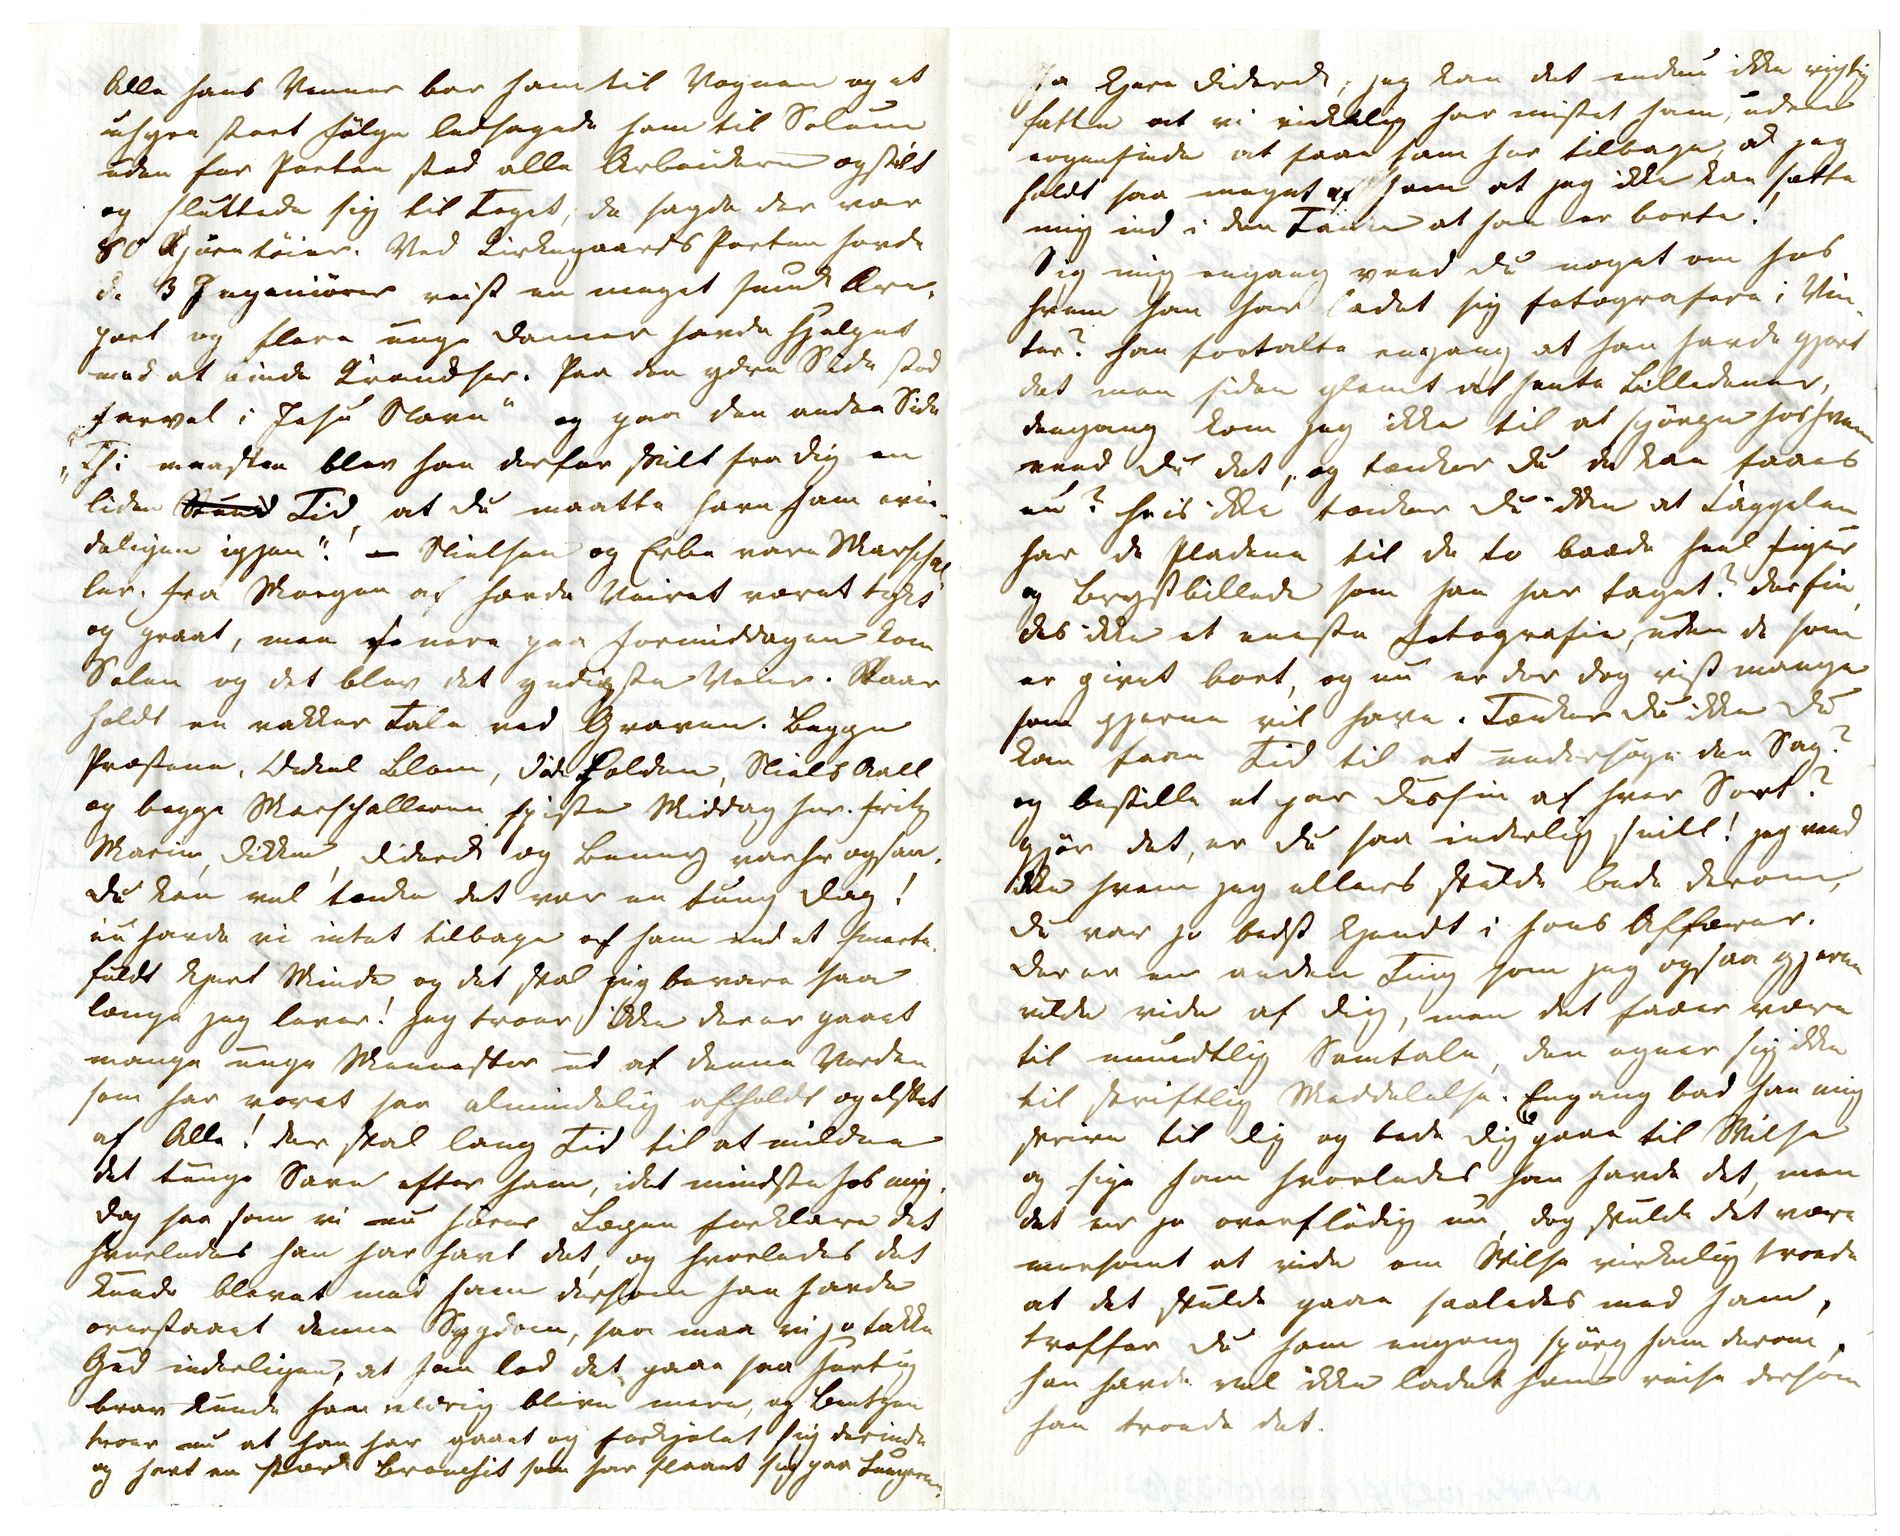 Alle hans Venner bar ham til Vognen og et
uhyre stort Følge ledsagede ham til Solum
uden for Porten stod alle Arbeiderne opstilt
og sluttede sig til Toget, de sagde der var
80 Kjøretøier. Ved Kirkegaards Porten havde
de 3 Ingeniörer reist en meget smuk Ære-
port og flere unge Damer havde hjelpet
med at binde Krandser. Paa den ydre Side stod
Farvel i Jesu Navn" og paa den anden Side
"Thi maaskee blev han derfor skilt fra dig en
liden Stund Tid, at du maatte have ham evin-
deligen igjen"! – Nielsen og Erbe vare Marschal
ler. Fra Morgen af havde Veiret været tykt
og graat, men senere paa Formiddagen kom
Solen og det blev det deiligste Veier. Skaar
holdt en vakker Tale ved Graven. Begge
Præstene, Diderik Blom, Did: Holden, Niels Aall
og begge Marschallerne spiste Middag her. Fritz
Marie, Dikken, Diderik og Benny var her ogsaa.
Du kan vel tænke det var en tung Dag!
nu havde vi intet tilbage af ham end et smerte-
fuldt kjert Minde og det skal jeg bevare saa
længe jeg lever! jeg troer ikke der er gaaet
mange unge Mennesker ud af denne Verden
som har været saa almindelig afholdt og elsket
af Alle! der skal lang Tid til at mildne
det tunge Savn efter ham, i det mindste hos mig.
Dog saa som vi nu hører Lægen forklare det
hvorledes han har havt det, og hvorledes det
kunde blevet med ham dersom han havde
overstaaet denne Sygdom, saa maa vi jo takke
Gud inderligen, at han lod det gaae saa hurtig
brav kunde han aldrig blive mere, og Bentzen
troer nu at han har gaaet og forkjølet sig derinde
og havt en stærk Bronchit som har slaaet sig paa Lungerne.
Ja kjere Diderik, jeg kan det endnu ikke rigtig
fatte at vi virkelig har mistet ham, uden
nogensinde at faae ham her tilbage, at jeg
holdt saa meget af ham at jeg ikke kan sætte
mig ind i den Tanke at han er borte!
Sig mig engang veed du noget om hos
hvem han har ladet sig fotografere i Vin-
ter? han fortalte engang at han havde gjort
det men siden glemt at hente Billederne,
dengang kom jeg ikke til at spörge hos hvem
veed du det, og tænker du de kan faaes
nu? hvis ikke tænker du ikke at Tæggelen
har de Pladene til de to baade heel Figur
og Brystbillede som han har taget? der fin
des ikke et eneste Fotografie, uden de som
er givet bort, og nu er der dog vist mange
som gjerne vil have. Tænker du ikke du
kan faae Tid til at undersøge den Sag?
og bestille et par Dussin af hver Sort?
gjør det, er du saa inderlig snill! jeg veed
ikke hvem jeg ellers skulde bede derom,
du var jo bedst kjendt i hans Affærer.
Der er en anden Ting som jeg ogsaa gjerne
vilde vide af dig, men det faaer være
til mundtlig Samtale, den egner sig ikke
til skriftlig Meddelelse. Engang bad han mig
skrive til dig og bede dig gaae til Wilse
og sige ham hvorledes han havde det, men
det er jo overflödig nu, dog skulde det være
morsomt at vide om Wilse virkelig troede
at det skulde gaae saaledes med ham,
træffer du ham engang spörg ham derom,
han havde vel ikke ladet ham reise dersom
han troede det.